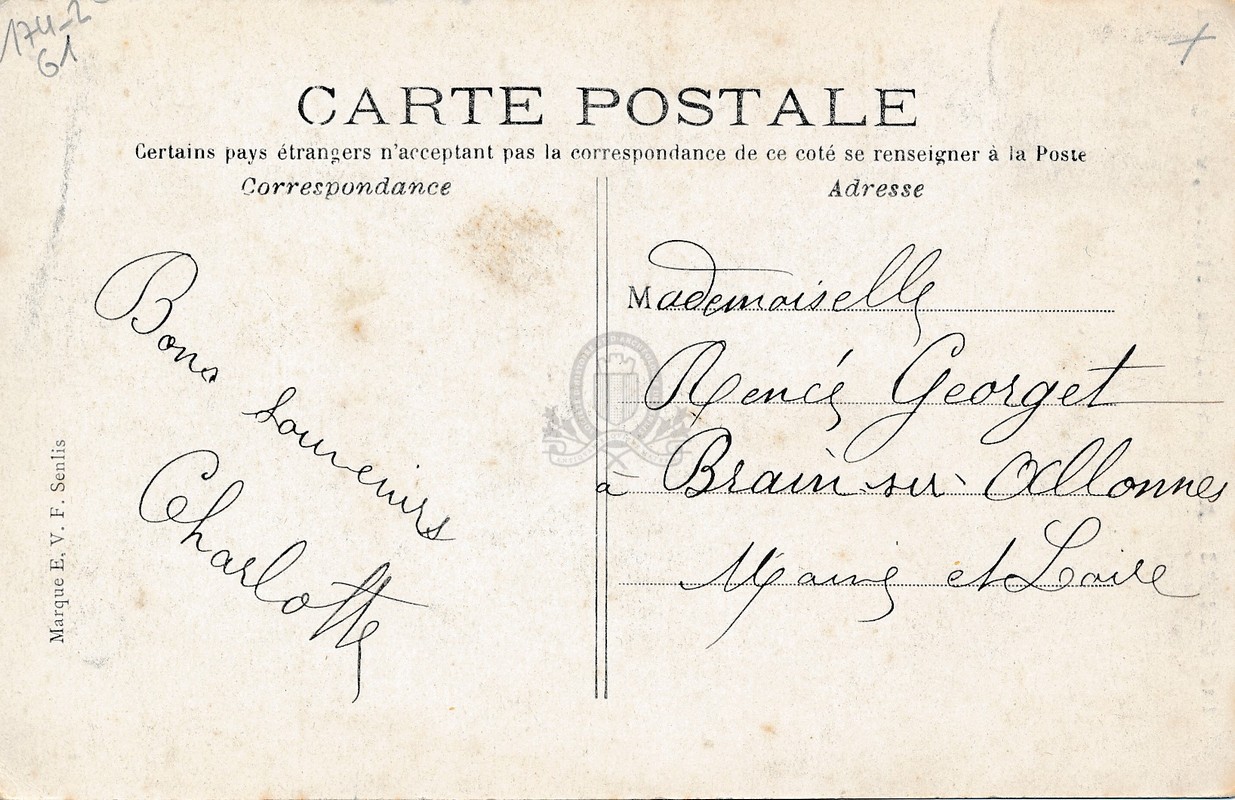 174-2
61
CARTE POSTALE
Certains pays étrangers n'acceptant pas la correspondance de ce coté se renseigner à la Poste
Correspondance
Adresse
Bons
souvenirs
Charlotte
Mademoiselle
Renée Georget
à Brain-sur-Allonnes
Maine et Loire
Marque E. V. F. Senlis